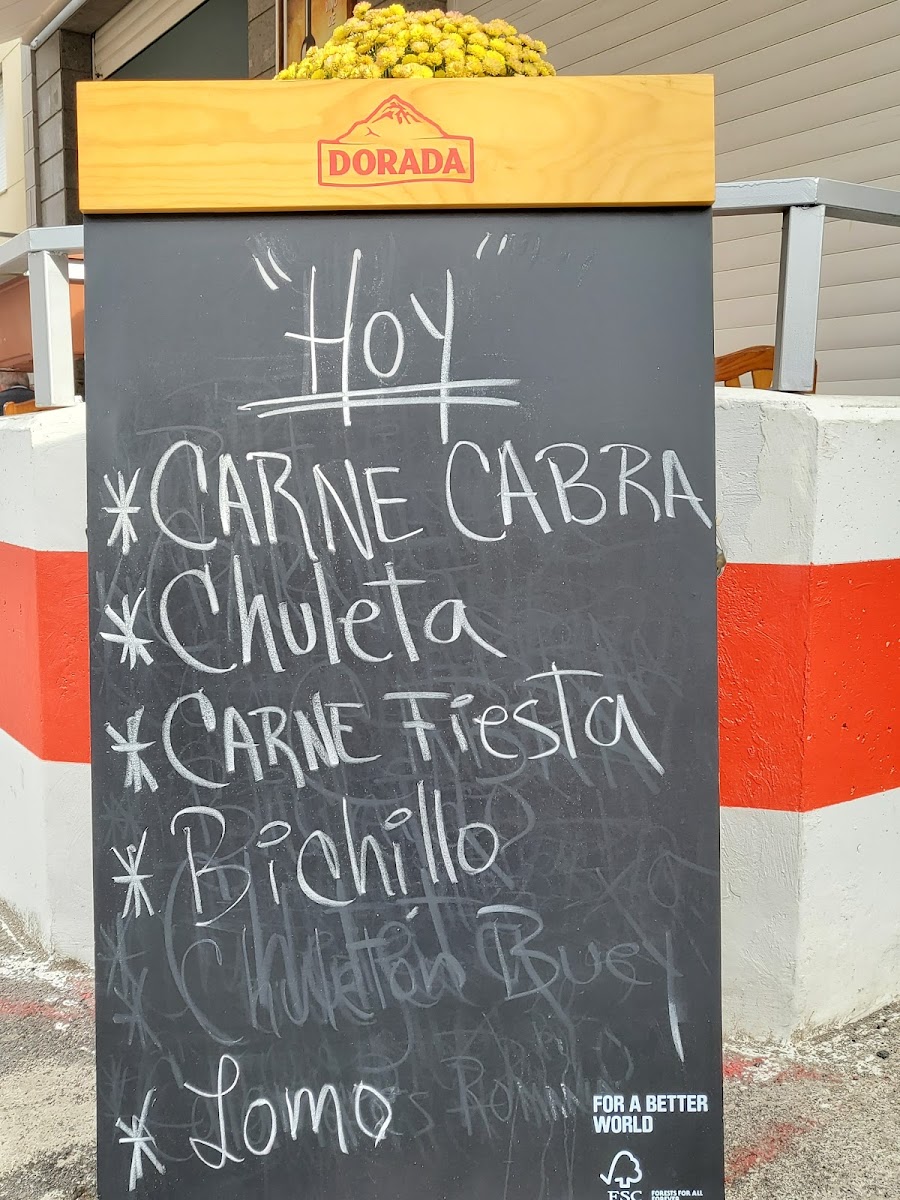 DORADA
"Hoy"
* CARNE CABRA
* Chuleta
* CARNE Fiesta
* Bichillo
Chuletón Buey
* Lomo
FOR A BETTER
WORLD
FSC
FORESTS FOR ALL
FOREVER